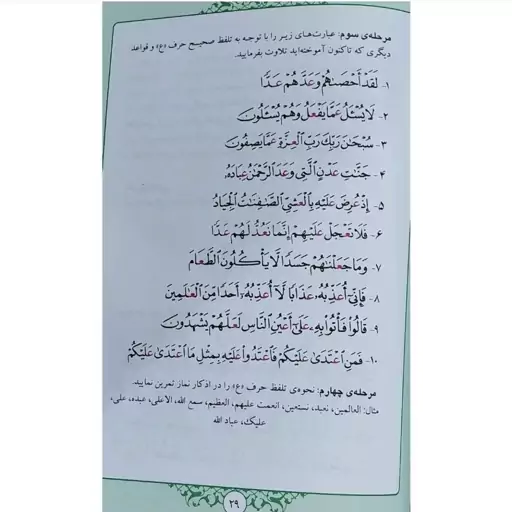 مرحله‌ی سوم: عبارت‌های زیر را با توجه به تلفظ صحیح حرف «ع» و قواعد
دیگری که تاکنون آموخته‌اید تلاوت بفرمایید.
۱- لَقَدْ أَحْصَىٰهُمْ وَعَدَّهُمْ عَدًّا
۲- لَا يُسْـَٔلُ عَمَّا يَفْعَلُ وَهُمْ يُسْـَٔلُونَ
۳- سُبْحَـٰنَ رَبِّكَ رَبِّ ٱلْعِزَّةِ عَمَّا يَصِفُونَ
۴- جَنَّـٰتِ عَدْنٍ ٱلَّتِى وَعَدَ ٱلرَّحْمَـٰنُ عِبَادَهُۥ
۵- إِذْ عُرِضَ عَلَيْهِ بِٱلْعَشِىِّ ٱلصَّـٰفِنَـٰتُ ٱلْجِيَادُ
۶- فَلَا تَعْجَلْ عَلَيْهِمْ إِنَّمَا نَعُدُّ لَهُمْ عَدًّا
۷- وَمَا جَعَلْنَـٰهُمْ جَسَدًا لَّا يَأْكُلُونَ ٱلطَّعَامَ
۸- فَإِنِّىٓ أُعَذِّبُهُۥ عَذَابًا لَّآ أُعَذِّبُهُۥٓ أَحَدًا مِّنَ ٱلْعَـٰلَمِينَ
۹- قَالُوا۟ فَأْتُوا۟ بِهِۦ عَلَىٰٓ أَعْيُنِ ٱلنَّاسِ لَعَلَّهُمْ يَشْهَدُونَ
۱۰- فَمَنِ ٱعْتَدَىٰ عَلَيْكُمْ فَٱعْتَدُوا۟ عَلَيْهِ بِمِثْلِ مَا ٱعْتَدَىٰ عَلَيْكُمْ
مرحله‌ی چهارم: نحوه‌ی تلفظ حرف «ع» را در اذکار نماز تمرین نمایید.
مثال: العالمین، نعبد، نستعین، انعمت علیهم، العظیم، سمع الله، الاعلی، عبده، علی،
علیک، عباد الله
۲۹